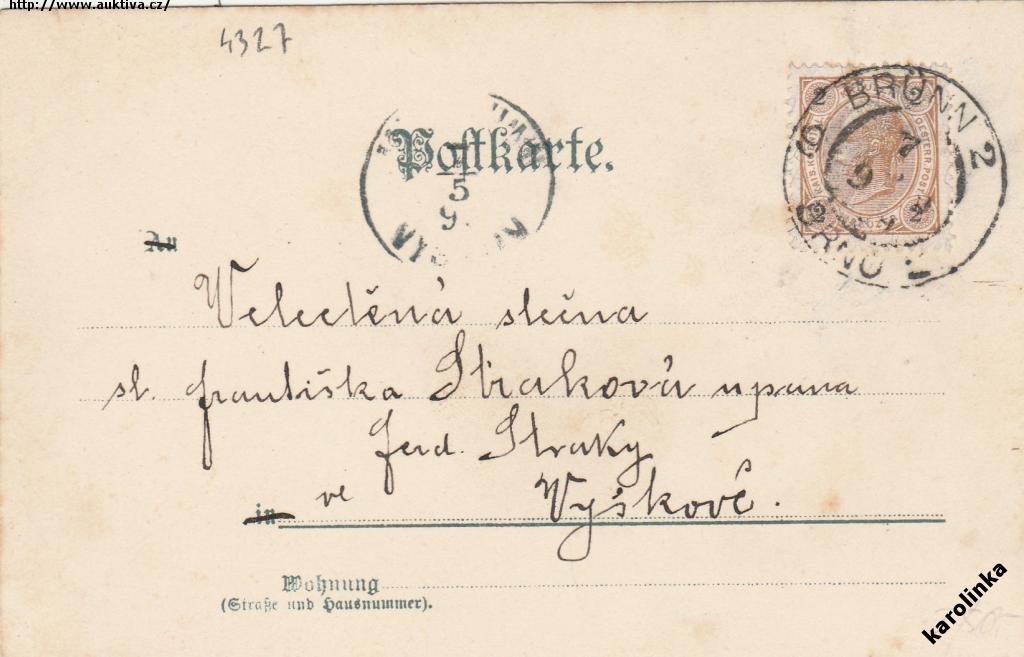 http://www.auktiva.cz/
4327
Postkarte.
BRÜNN 2
BRNO
An
Velectěná slečna
sl. Františka Straková u pana
Ferd. Straky
in ve Vyškově.
Wohnung
(Straße und Hausnummer).
karolinka